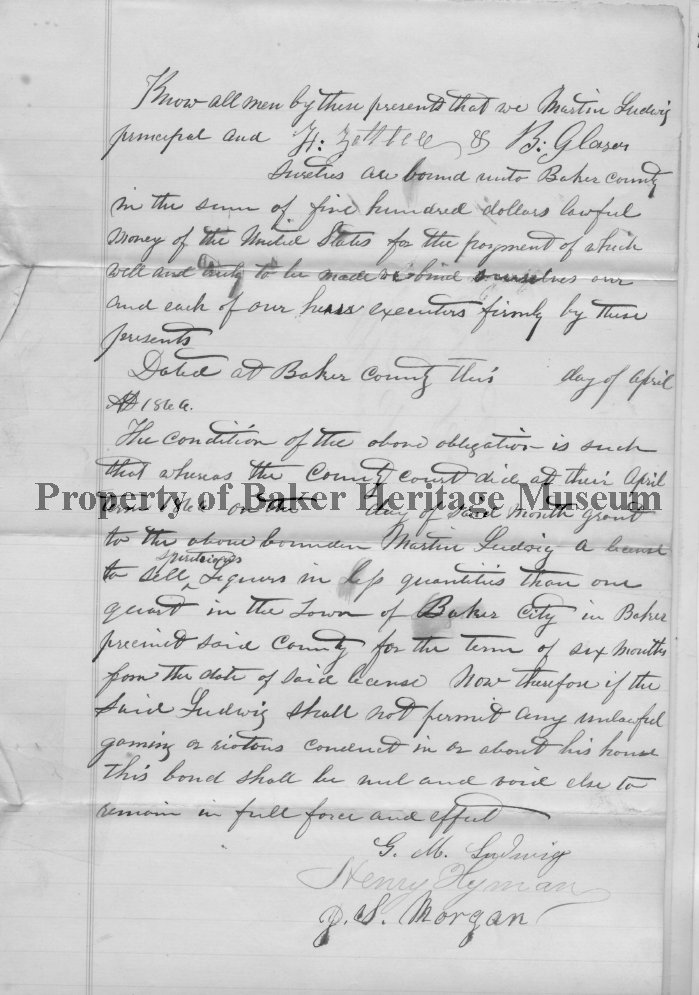 Know all men by these presents that we Martin Ludwig
principal and & B: Glaser
Sureties are bound unto Baker County
in the sum of five hundred dollars lawful
money of the United States for the payment of which
well and duly to be made we bind ourselves our
and each of our heirs executers firmly by these
presents
Dated at Baker County this day of April
AD 1866.
The condition of the above obligation is such
that whereas the County Court did at their April
Property of Baker Heritage Museum
term 1866 on the day of said month grant
to the above bounden Martin Ludwig a license
spirituous
to sell ^ Liquers in less quantities than one
quart in the Town of Baker City in Baker
precinct said County for the term of six months
from the date of said license Now therefore if the
said Ludwig shall not permit any unlawful
gaming or riotous conduct in or about his house
this bond shall be null and void else to
remain in full force and effect
G. M. Ludwig
Henry Hyman
J. S. Morgan